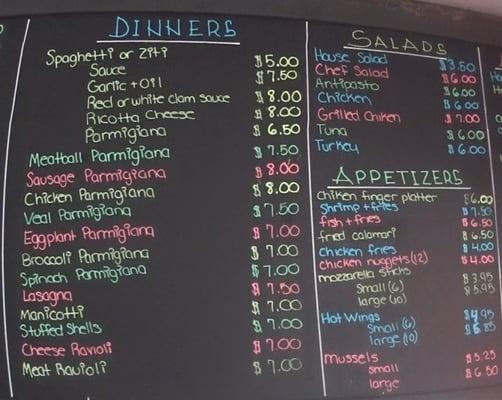 DINNERS
Spaghetti or Ziti
Sauce $5.00
Garlic + Oil $7.50
Red or white Clam Sauce $8.00
Ricotta Cheese $8.00
Parmigiana $6.50
Meatball Parmigiana $7.50
Sausage Parmigiana $8.00
Chicken Parmigiana $8.00
Veal Parmigiana $7.50
Eggplant Parmigiana $7.00
Broccoli Parmigiana $7.00
Spinach Parmigiana $7.00
Lasagna $7.50
Manicotti $7.00
Stuffed Shells $7.00
Cheese Ravioli $7.00
Meat Ravioli $7.00
SALADS
House Salad $3.50
Chef Salad $6.00
Antipasto $6.00
Chicken $6.00
Grilled Chiken $7.00
Tuna $6.00
Turkey $6.00
APPETIZERS
chiken finger platter $6.00
Shrimp + fries $7.50
fish + fries $6.50
fried calamari $6.50
chicken fries $4.00
chicken nuggets (12) $4.00
mozzarella sticks
small (6) $3.95
large (10) $5.95
Hot Wings
small (6) $4.95
large (10)
mussels
small $5.25
large $6.50